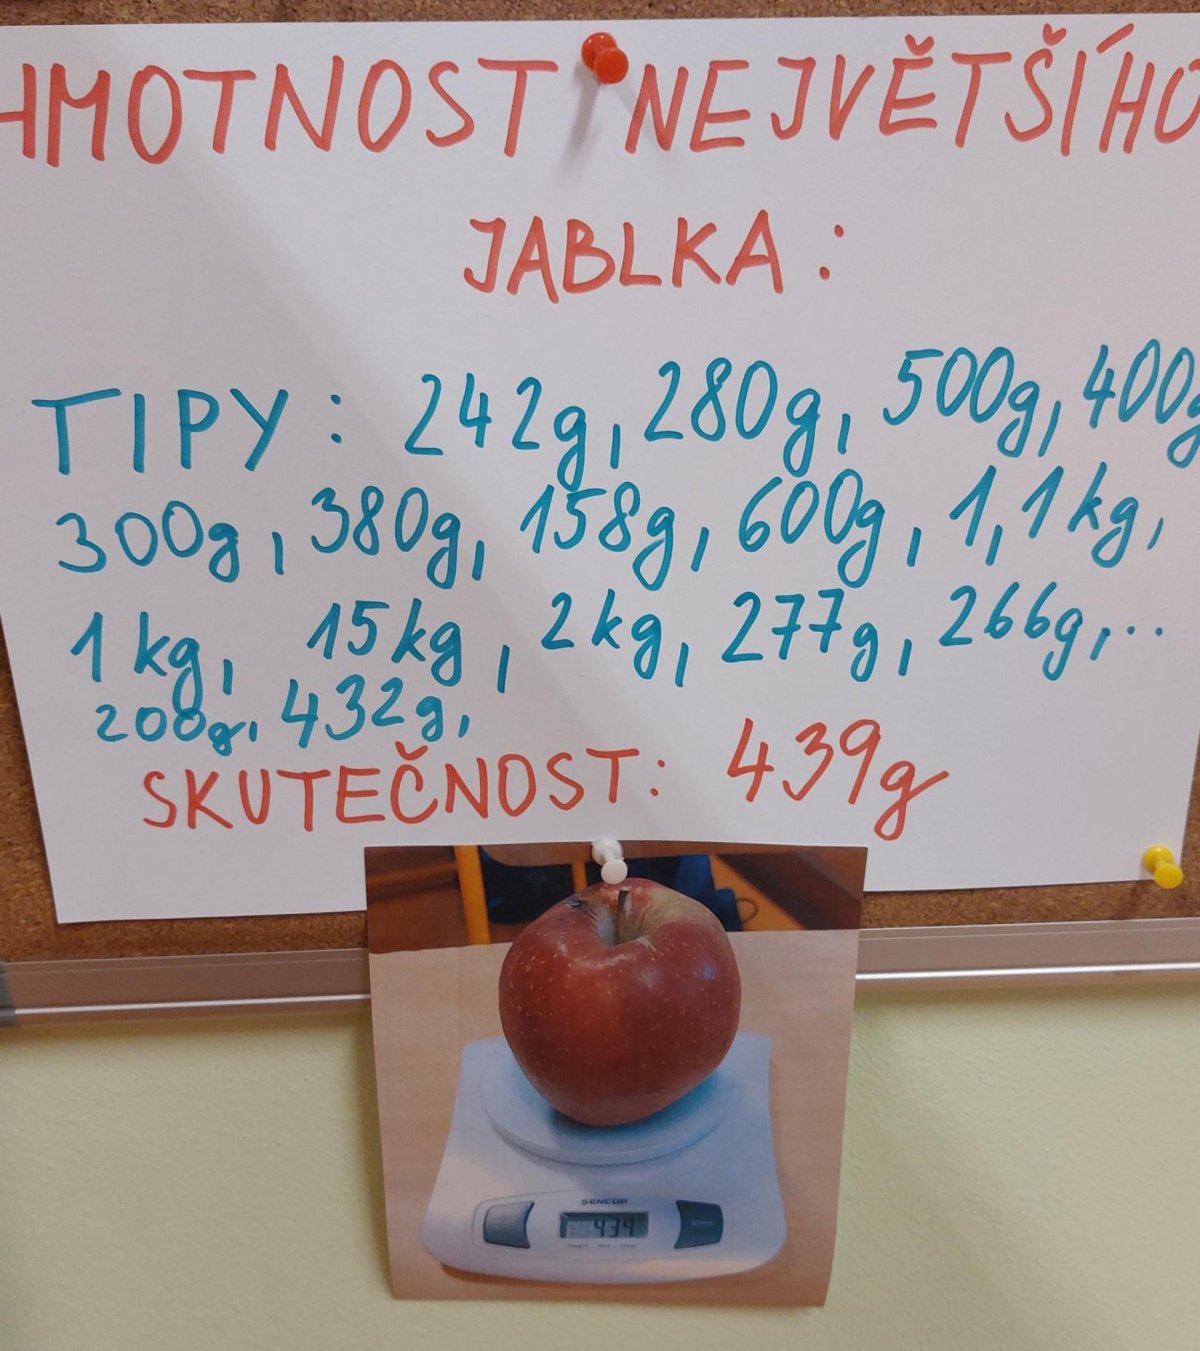 HMOTNOST NEJVĚTŠÍHO
JABLKA :
TIPY : 242g, 280g, 500g, 400g
300g, 380g, 158g, 600g, 1,1kg,
1kg, 15kg, 2kg, 277g, 266g,...
200g, 432g,
SKUTEČNOST: 439g
SENCOR
439